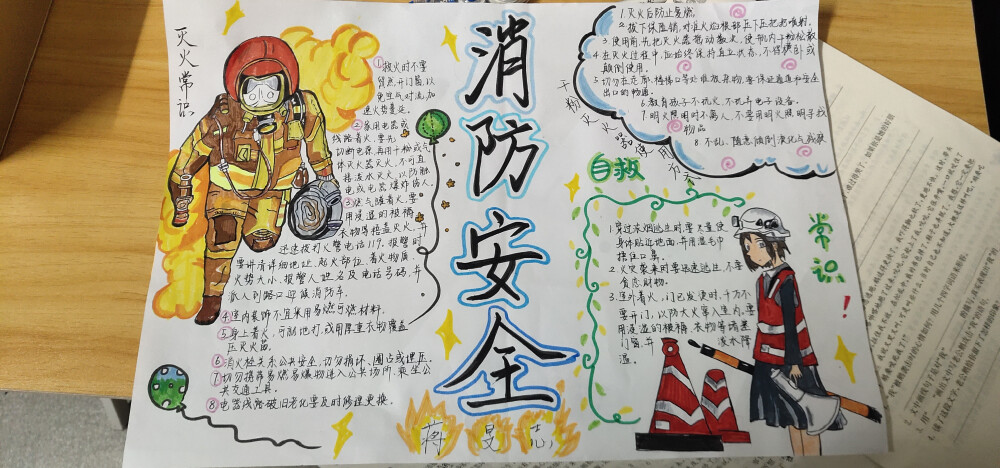 灭火常识
①救火时不要
贸然开门窗,以
免空气对流,加
速火势蔓延。
②家用电器或
线路着火,要先
切断电源,再用干粉或气
体灭火器灭火,不可直
接泼水灭火,以防触
电或电器爆炸伤人。
③燃气罐着火,要
用浸湿的棉褥
衣物等捂盖灭火,并
迅速拨打火警电话119。报警时
要讲清详细地址、起火部位、着火物质、
火势大小、报警人姓名及电话号码,并
派人到路口迎候消防车。
④室内装饰不宜采用易燃可燃材料。
⑤身上着火,可就地打,或用厚重衣物覆盖
压灭火苗。
⑥消火栓关系公共安全,切勿损坏、圈占或埋压。
⑦切勿携带易燃易爆物进入公共场所、乘坐公
共交通工具。
⑧电器线路破旧老化要及时修理更换。
消防安全
蒋旻志
1.灭火后防止复燃。
2.拔下保险销,对准火焰根部压下压把喷射。
3.使用前,先把灭火器摇动数次,使瓶内干粉松散
4.在灭火过程中,应始终保持直立状态,不得横卧或
颠倒使用。
5.切勿在走廊、楼梯口等处堆放杂物,要保证通道和安全
出口的畅通。
6.教育孩子不玩火,不玩弄电子设备。
7.明火照明时不离人,不要用明火照明寻找
物品
8.不乱、随意倾倒液化气残液
干粉灭火器使用方法
自救
常识!
1.穿过浓烟逃生时,要尽量使
身体贴近地面,并用湿毛巾
捂住口鼻。
2.火灾袭来时要迅速逃生,不要
贪恋财物。
3.室外着火,门已发烫时,千万不
要开门,以防大火窜入室内,要
用浸湿的棉褥、衣物等堵塞
门窗,并泼水降
温。